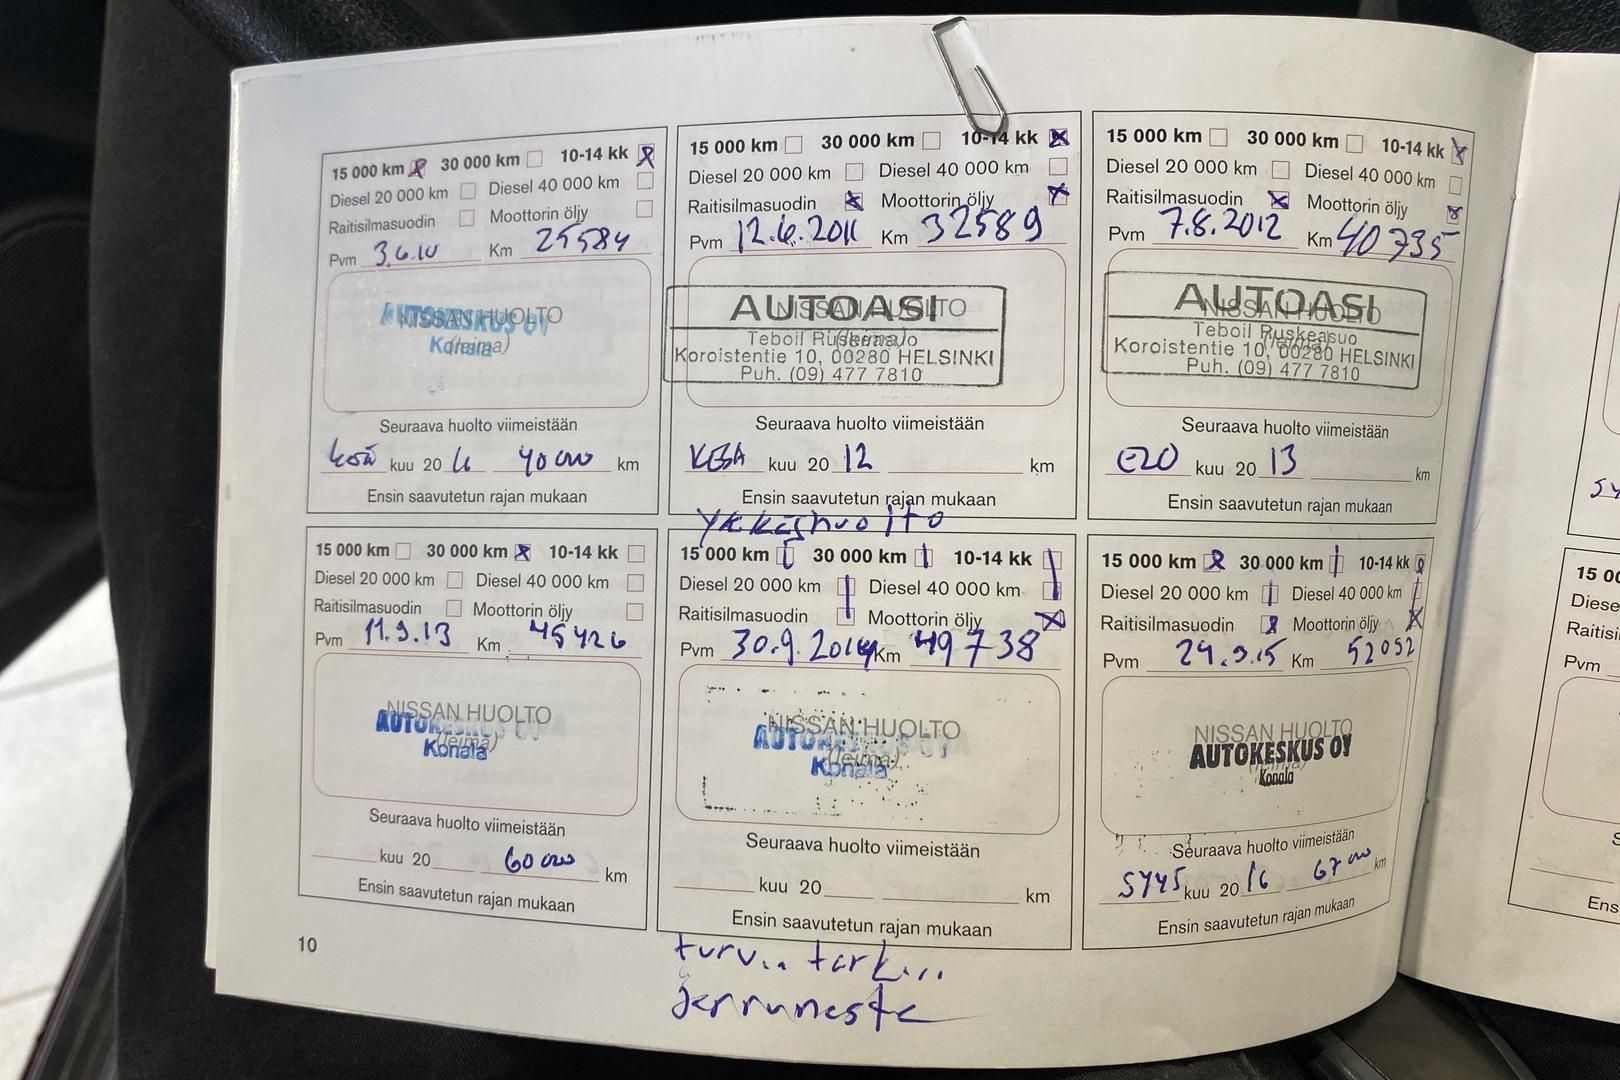 15 000 km 30 000 km 10-14 kk
Diesel 20 000 km Diesel 40 000 km
Raitisilmasuodin Moottorin öljy
Pvm 3.6.10 Km 25584
NISSAN HUOLTO
(leima)
AUTOKESKUS OY
Konala
Seuraava huolto viimeistään
kesä kuu 20 11 40 000 km
Ensin saavutetun rajan mukaan
15 000 km 30 000 km 10-14 kk
Diesel 20 000 km Diesel 40 000 km
Raitisilmasuodin Moottorin öljy
Pvm 12.6.2011 Km 32589
NISSAN HUOLTO
(leima)
AUTOASI
Teboil Ruskeasuo
Koroistentie 10, 00280 HELSINKI
Puh. (09) 477 7810
Seuraava huolto viimeistään
KESÄ kuu 20 12 km
Ensin saavutetun rajan mukaan
15 000 km 30 000 km 10-14 kk
Diesel 20 000 km Diesel 40 000 km
Raitisilmasuodin Moottorin öljy
Pvm 7.8.2012 Km 40735
NISSAN HUOLTO
(leima)
AUTOASI
Teboil Ruskeasuo
Koroistentie 10, 00280 HELSINKI
Puh. (09) 477 7810
Seuraava huolto viimeistään
ELO kuu 20 13 km
Ensin saavutetun rajan mukaan
15 000 km 30 000 km 10-14 kk
Diesel 20 000 km Diesel 40 000 km
Raitisilmasuodin Moottorin öljy
Pvm 11.9.13 Km 45426
NISSAN HUOLTO
(leima)
AUTOKESKUS OY
Konala
Seuraava huolto viimeistään
kuu 20 60 000 km
Ensin saavutetun rajan mukaan
Ykköshuolto
15 000 km 30 000 km 10-14 kk
Diesel 20 000 km Diesel 40 000 km
Raitisilmasuodin Moottorin öljy
Pvm 30.9.2014 Km 49738
NISSAN HUOLTO
(leima)
AUTOKESKUS OY
Konala
Seuraava huolto viimeistään
kuu 20 km
Ensin saavutetun rajan mukaan
turv.. tark...
jarruneste
15 000 km 30 000 km 10-14 kk
Diesel 20 000 km Diesel 40 000 km
Raitisilmasuodin Moottorin öljy
Pvm 24.9.15 Km 52052
NISSAN HUOLTO
(leima)
AUTOKESKUS OY
Konala
Seuraava huolto viimeistään
SYYS kuu 20 16 67 000 km
Ensin saavutetun rajan mukaan
10
SY
15 00
Diese
Raitisi
Pvm
S
Ens